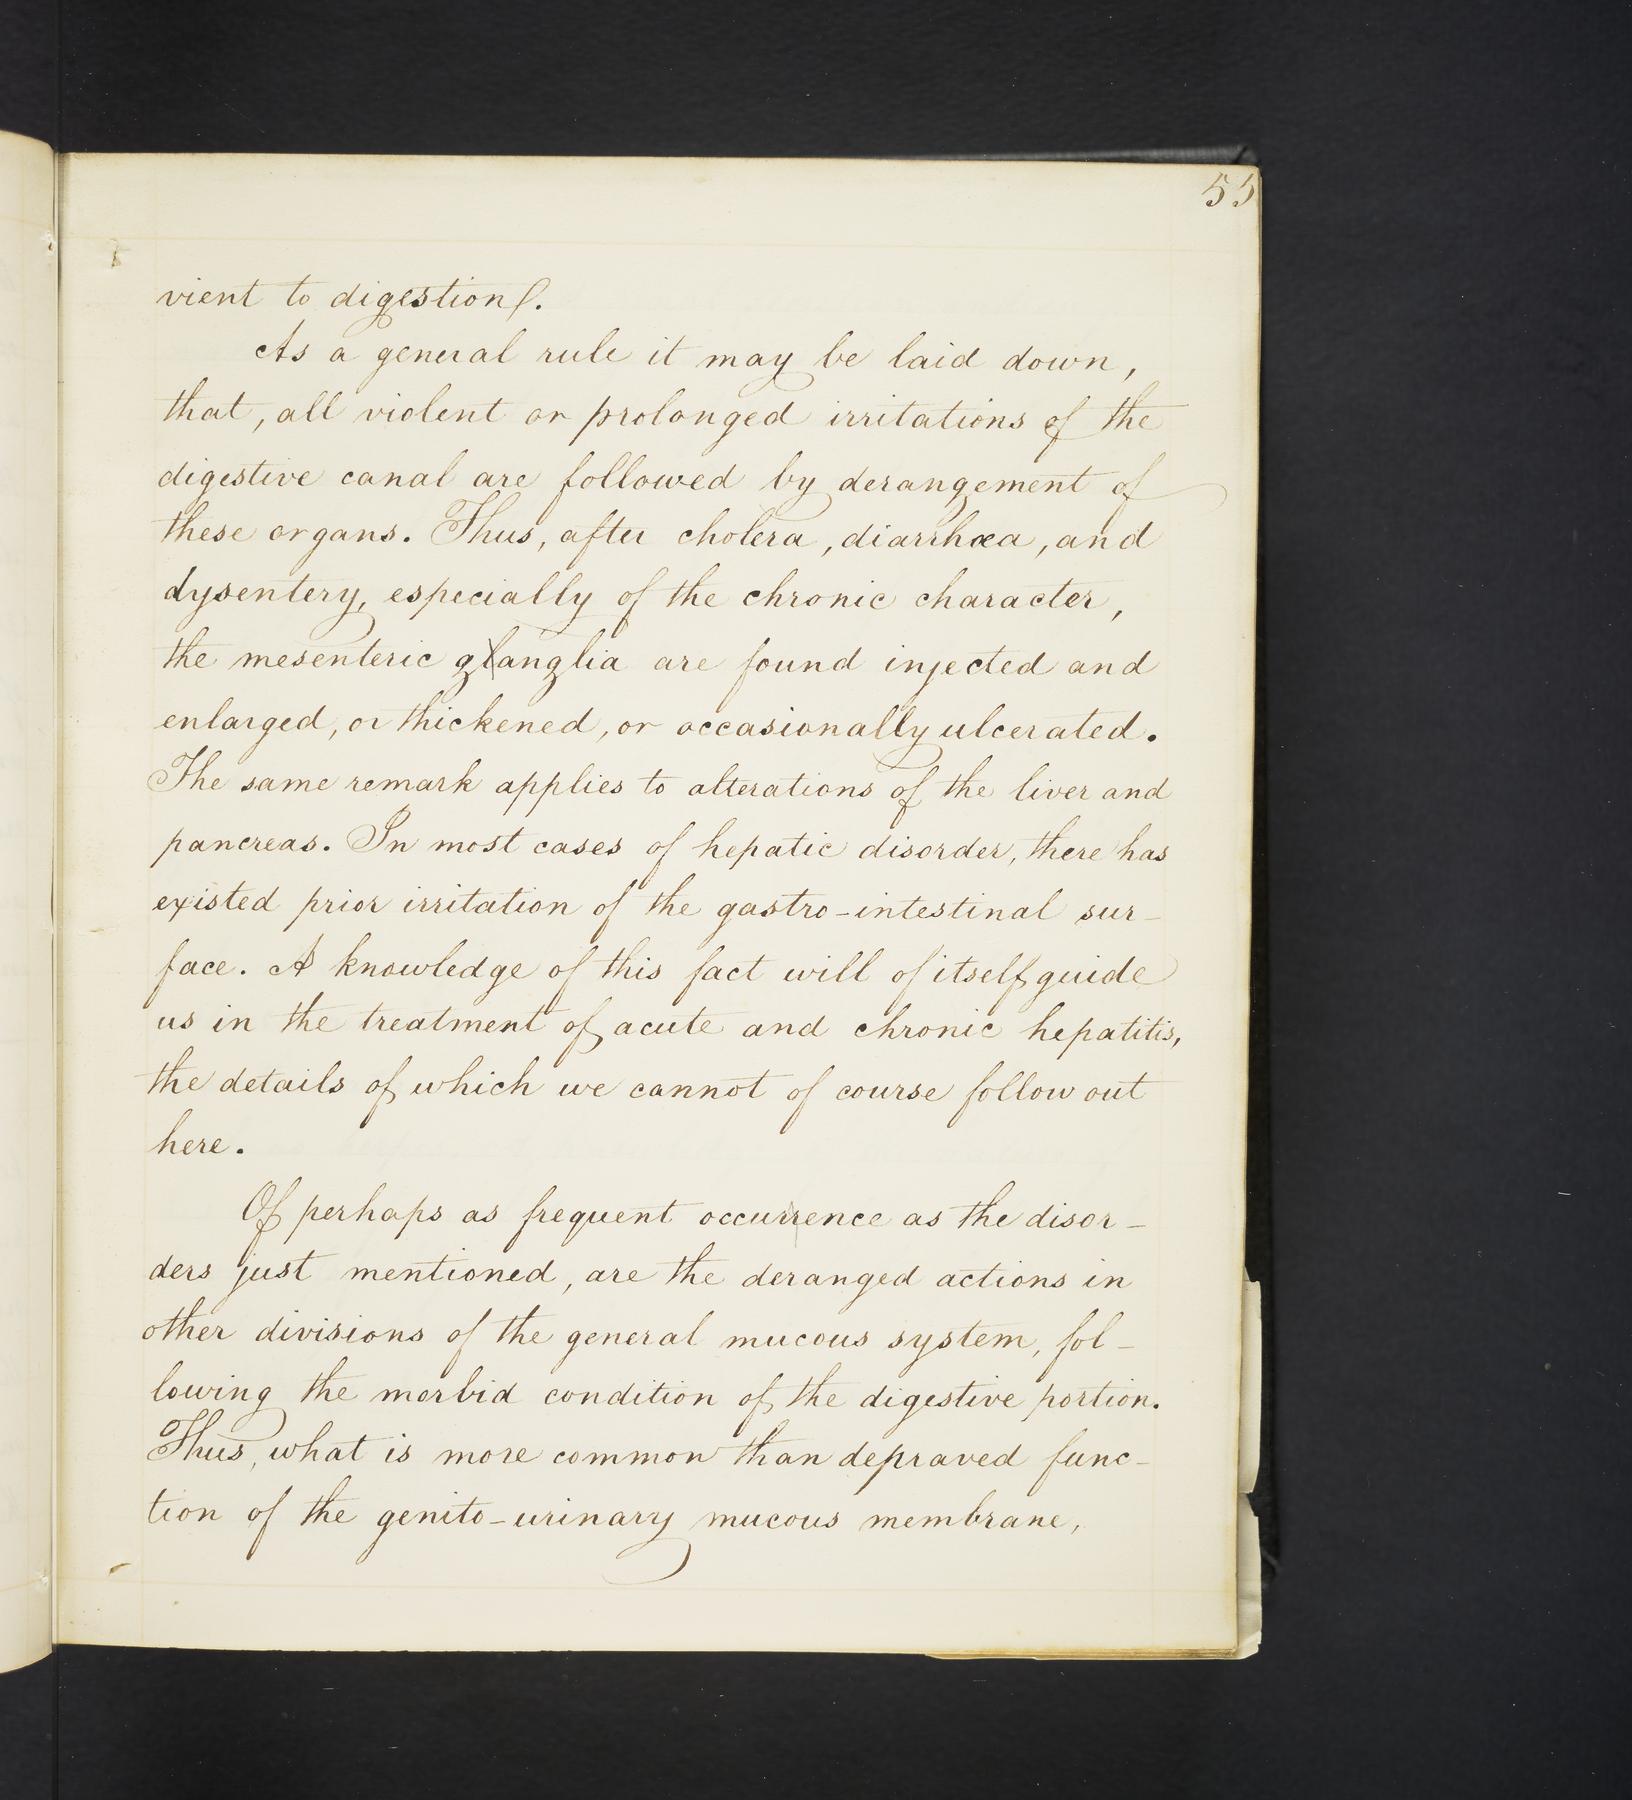 55
vient to digestion.
As a general rule it may be laid down,
that, all violent or prolonged irritations of the
digestive canal are followed by derangement of
these organs. Thus, after cholera, diarrhœa, and
dysentery, especially of the chronic character,
the mesenteric ganglia are found injected and
enlarged, or thickened, or occasionally ulcerated.
The same remark applies to alterations of the liver and
pancreas. In most cases of hepatic disorder, there has
existed prior irritation of the gastro-intestinal sur-
face. A knowledge of this fact will of itself guide
us in the treatment of acute and chronic hepatitis,
the details of which we cannot of course follow out
here.
Of perhaps as frequent occurrence as the disor-
ders just mentioned, are the deranged actions in
other divisions of the general mucous system, fol-
lowing the morbid condition of the digestive portion.
Thus, what is more common than depraved func-
tion of the genito-urinary mucous membrane,